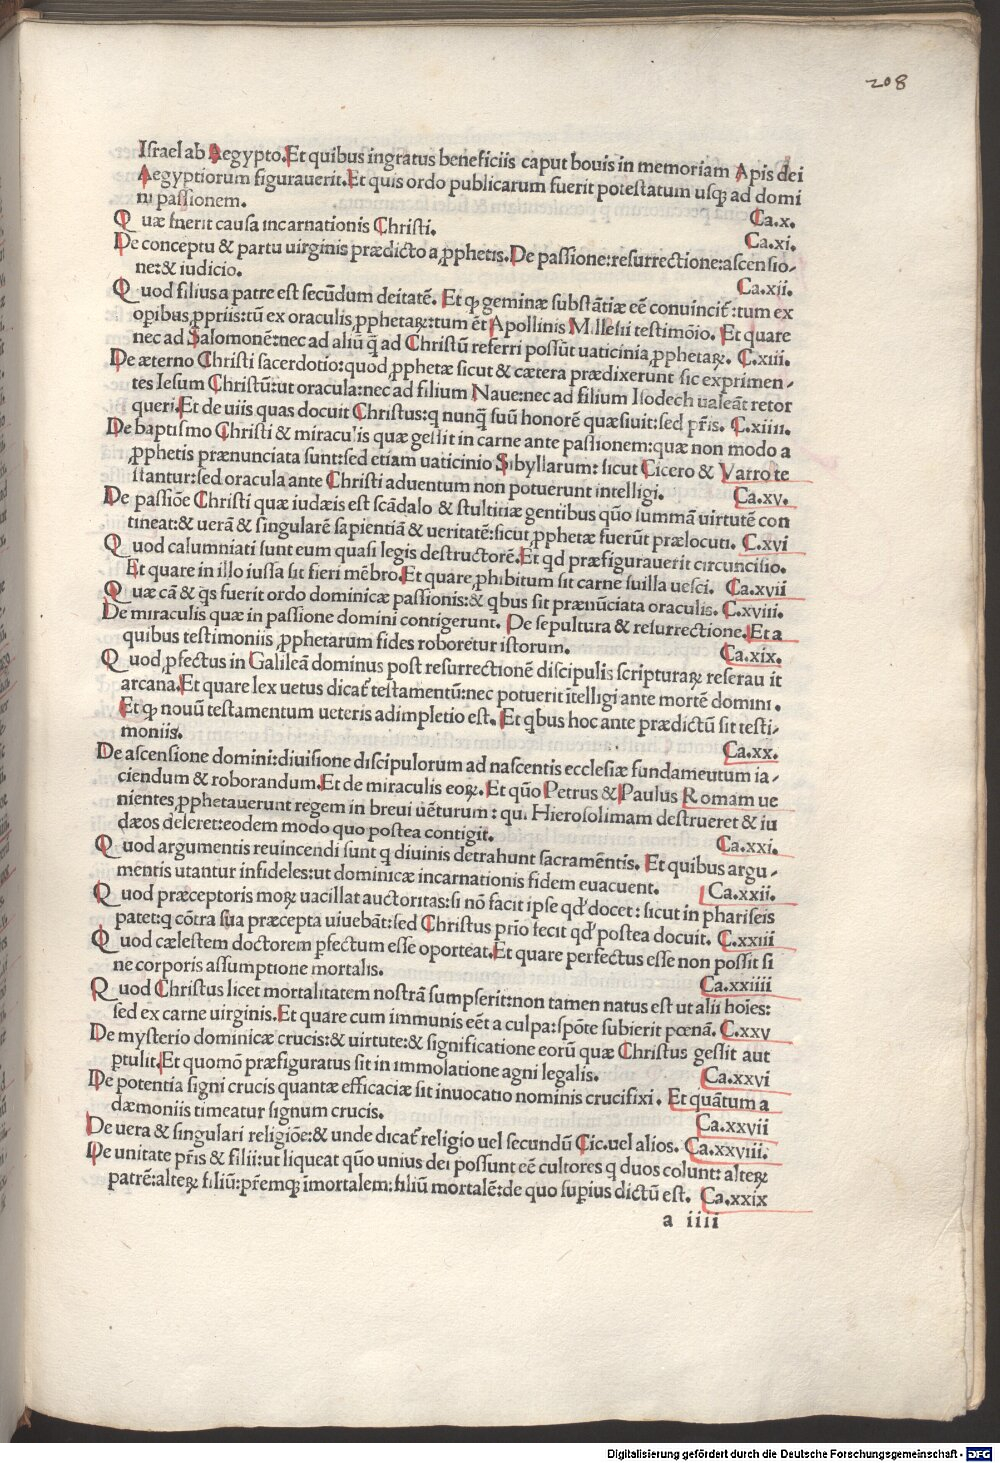 208
Israel ab Aegypto. Et quibus ingratus beneficiis caput bouis in memoriam Apis dei
Aegyptiorum figurauerit. Et quis ordo publicarum fuerit potestatum usq; ad domi
ni passionem. Ca.x.
Quæ fnerit causa incarnationis Christi. Ca.xi.
De conceptu & partu uirginis prædicto a ꝓphetis. De passione: resurrectione: ascensio-
ne: & iudicio. Ca.xii.
Quod filius a patre est secūdum deitatē. Et ꝙ geminæ substātiæ eē conuincit̃: tum ex
oꝑibus ꝓpriis: tū ex oraculis ꝓphetaꝝ: tum ēt Apollinis Millesii testimōio. Et quare
nec ad Salomonē: nec ad aliū q̄ ad Christū referri possūt uaticinia ꝓphetaꝝ. C.xiii.
De æterno Christi sacerdotio: quod ꝓphetæ sicut & cætera prædixerunt sic exprimen-
tes Iesum Christū: ut oracula: nec ad filium Naue: nec ad filium Iosedech ualeāt retor
queri. Et de uiis quas docuit Christus: q nunq̄ suū honorē quæsiuit: sed pr̄is. C.xiiii.
De baptismo Christi & miraculis quæ gessit in carne ante passionem: quæ non modo a
ꝓphetis prænunciata sunt: sed etiam uaticinio Sibyllarum: sicut Cicero & Varro te
stantur: sed oracula ante Christi aduentum non potuerunt intelligi. Ca.xv.
De passiōe Christi quæ iudæis est scādalo & stultitiæ gentibus quō summā uirtutē con
tineat: & uerā & singularē sapientiā & ueritatē: sicut ꝓphetæ fuerūt prælocuti. C.xvi
Quod calumniati sunt eum quasi legis destructorē. Et qd præfigurauerit circuncisio.
Et quare in illo iussa sit fieri mēbro. Et quare ꝓhibitum sit carne suilla uesci. Ca.xvii
Quæ cā & q̄s fuerit ordo dominicæ passionis: & qbus sit prænūciata oraculis. C.xviii.
De miraculis quæ in passione domini contigerunt. De sepultura & resurrectione. Et a
quibus testimoniis ꝓphetarum fides roboretur istorum. Ca.xix.
Quod ꝓfectus in Galileā dominus post resurrectionē discipulis scripturaꝝ reserau it
arcana. Et quare lex uetus dicat̃ testamentū: nec potuerit ītelligi ante mortē domini.
Et ꝙ nouū testamentum ueteris adimpletio est. Et qbus hoc ante prædictū sit testi-
moniis. Ca.xx.
De ascensione domini: diuisione discipulorum ad nascentis ecclesiæ fundameutum ia-
ciendum & roborandum. Et de miraculis eoꝝ. Et quō Petrus & Paulus Romam ue
nientes ꝓphetauerunt regem in breui uēturum: qui Hierosolimam destrueret & iu
dæos deleret: eodem modo quo postea contigit. Ca.xxi.
Quod argumentis reuincendi sunt q diuinis detrahunt sacramētis. Et quibus argu-
mentis utantur infideles: ut dominicæ incarnationis fidem euacuent. Ca.xxii.
Quod præceptoris moꝝ uacillat auctoritas: si nō facit ipse qd' docet: sicut in phariseis
patet: q cōtra sua præcepta uiuebāt: sed Christus prio fecit qd' postea docuit. C.xxiii
Quod cælestem doctorem ꝑfectum esse oporteat. Et quare perfectus esse non possit si
ne corporis assumptione mortalis. Ca.xxiiii
Quod Christus licet mortalitatem nostrā sumpserit: non tamen natus est ut alii hoīes:
sed ex carne uirginis. Et quare cum immunis eēt a culpa: spōte subierit pœnā. C.xxv
De mysterio dominicæ crucis: & uirtute: & significatione eorū quæ Christus gessit aut
ꝑtulit. Et quomō præfiguratus sit in immolatione agni legalis. Ca.xxvi
De potentia signi crucis quantæ efficaciæ sit inuocatio nominis crucifixi. Et quātum a
dæmoniis timeatur signum crucis. Ca.xxvii
De uera & singulari religiōe: & unde dicat̃ religio uel secundū Cic. uel alios. Ca.xxviii.
De unitate pr̄is & filii: ut liqueat quō unius dei possunt eē cultores q duos colunt: alteꝝ
patrē: alteꝝ filiū: pr̄emq; īmortalem: filiū mortalē: de quo suꝑius dictū est. Ca.xxix
a iiii
Digitalisierung gefördert durch die Deutsche Forschungsgemeinschaft - DFG